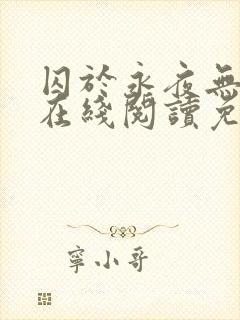 囚於永夜無
在綫閱讀免
寧小哥